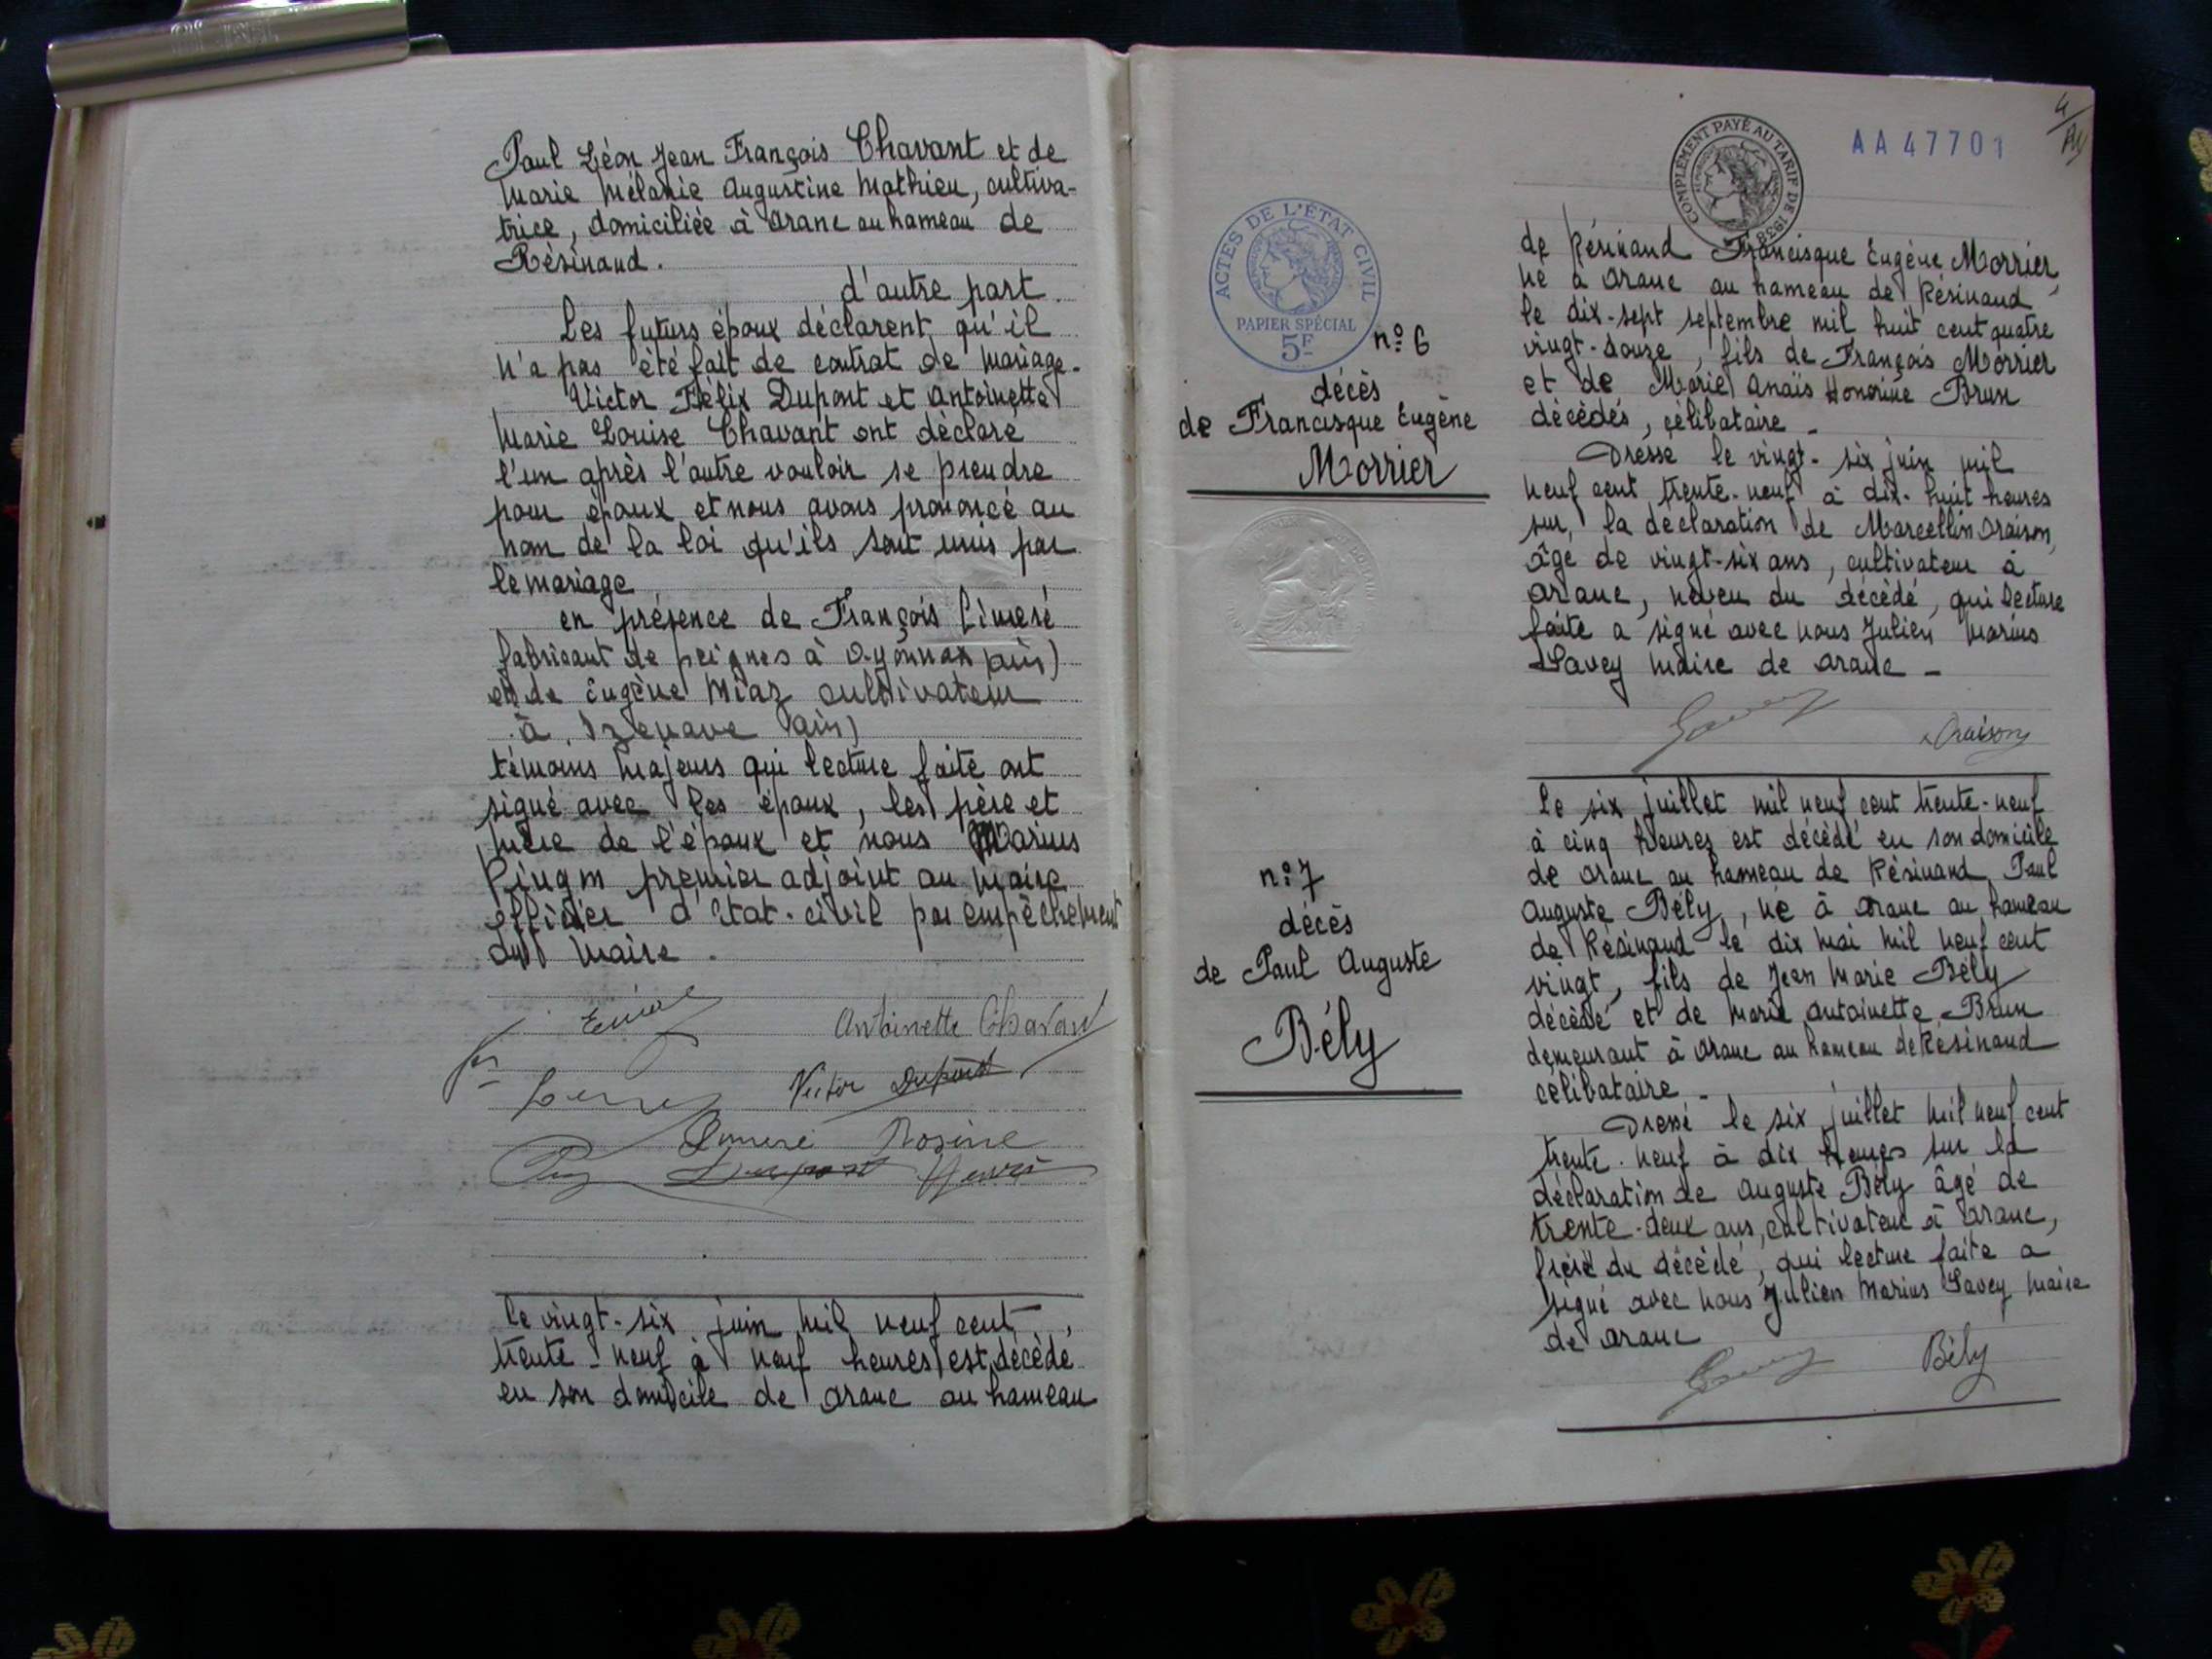 Paul Léon Jean François Chavant et de
Marie Mélanie Augustine Mathieu, cultiva-
trice, domiciliée à Aranc au hameau de
Résinand.
d'autre part.
Les futurs époux déclarent qu'il
n'a pas été fait de contrat de mariage.
Victor Félix Dupont et Antoinette
Marie Louise Chavant ont déclaré
l'un après l'autre vouloir se prendre
pour époux et nous avons prononcé au
nom de la loi qu'ils sont unis par
le mariage
en présence de François
fabricant de peignes à Oyonnax (Ain)
et de Eugène Miaz cultivateur
à Izenave (Ain)
témoins majeurs qui lecture faite ont
signé avec les époux, les père et
mère de l'époux et nous Marius
premier adjoint au maire
officier d'état-civil par empêchement
du Maire.
Antoinette Chavant
Victor Dupont
Rosine
Dupont Henri
Le vingt-six juin mil neuf cent
trente-neuf à neuf heures est décédé
en son domicile de Aranc au hameau
COMPLÉMENT PAYÉ AU TARIF DE 1938
AA 47701
4
ACTES DE L'ÉTAT CIVIL
PAPIER SPÉCIAL
5F
n° 6
décès
de Francisque Eugène
Morrier
de Résinand Francisque Eugène Morrier,
né à Aranc au hameau de Résinand
le dix-sept septembre mil huit cent quatre
vingt-douze, fils de François Morrier
et de Marie Anaïs Honorine Brun
décédés, célibataire -
Dressé le vingt-six juin mil
neuf cent trente-neuf à dix-huit heures
sur la déclaration de Marcellin Oraison,
âgé de vingt-six ans, cultivateur à
Aranc, neveu du décédé, qui lecture
faite a signé avec nous Julien Marius
Savey Maire de Aranc -
Savey
Oraison
n° 7
décès
de Paul Auguste
Bély
Le six juillet mil neuf cent trente-neuf
à cinq heures est décédé en son domicile
de Aranc au hameau de Résinand Paul
Auguste Bély, né à Aranc au hameau
de Résinand le dix mai mil neuf cent
vingt, fils de Jean Marie Bély
décédé et de Marie Antoinette Brun
demeurant à Aranc au hameau de Résinand
célibataire -
Dressé le six juillet mil neuf cent
trente-neuf à dix heures sur la
déclaration de Auguste Bély âgé de
trente-deux ans, cultivateur à Aranc,
frère du décédé, qui lecture faite a
signé avec nous Julien Marius Savey Maire
de Aranc
Savey
Bély